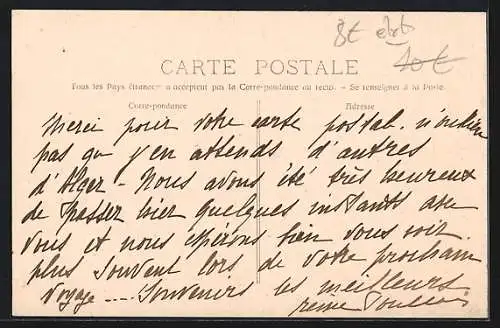 8€ ebt
10€
CARTE POSTALE
Tous les Pays étrangers n'acceptent pas la Correspondance au recto. — Se renseigner à la Poste.
Correspondance
Adresse
Merci pour votre carte postal. n'oublier
pas que j'en attends d'autres
d'Alger – Nous avons été très heureux
de passer hier quelques instants avec
vous et nous espérons bien vous voir
plus souvent lors de votre prochain
voyage .... Souvenirs les meilleurs
reine